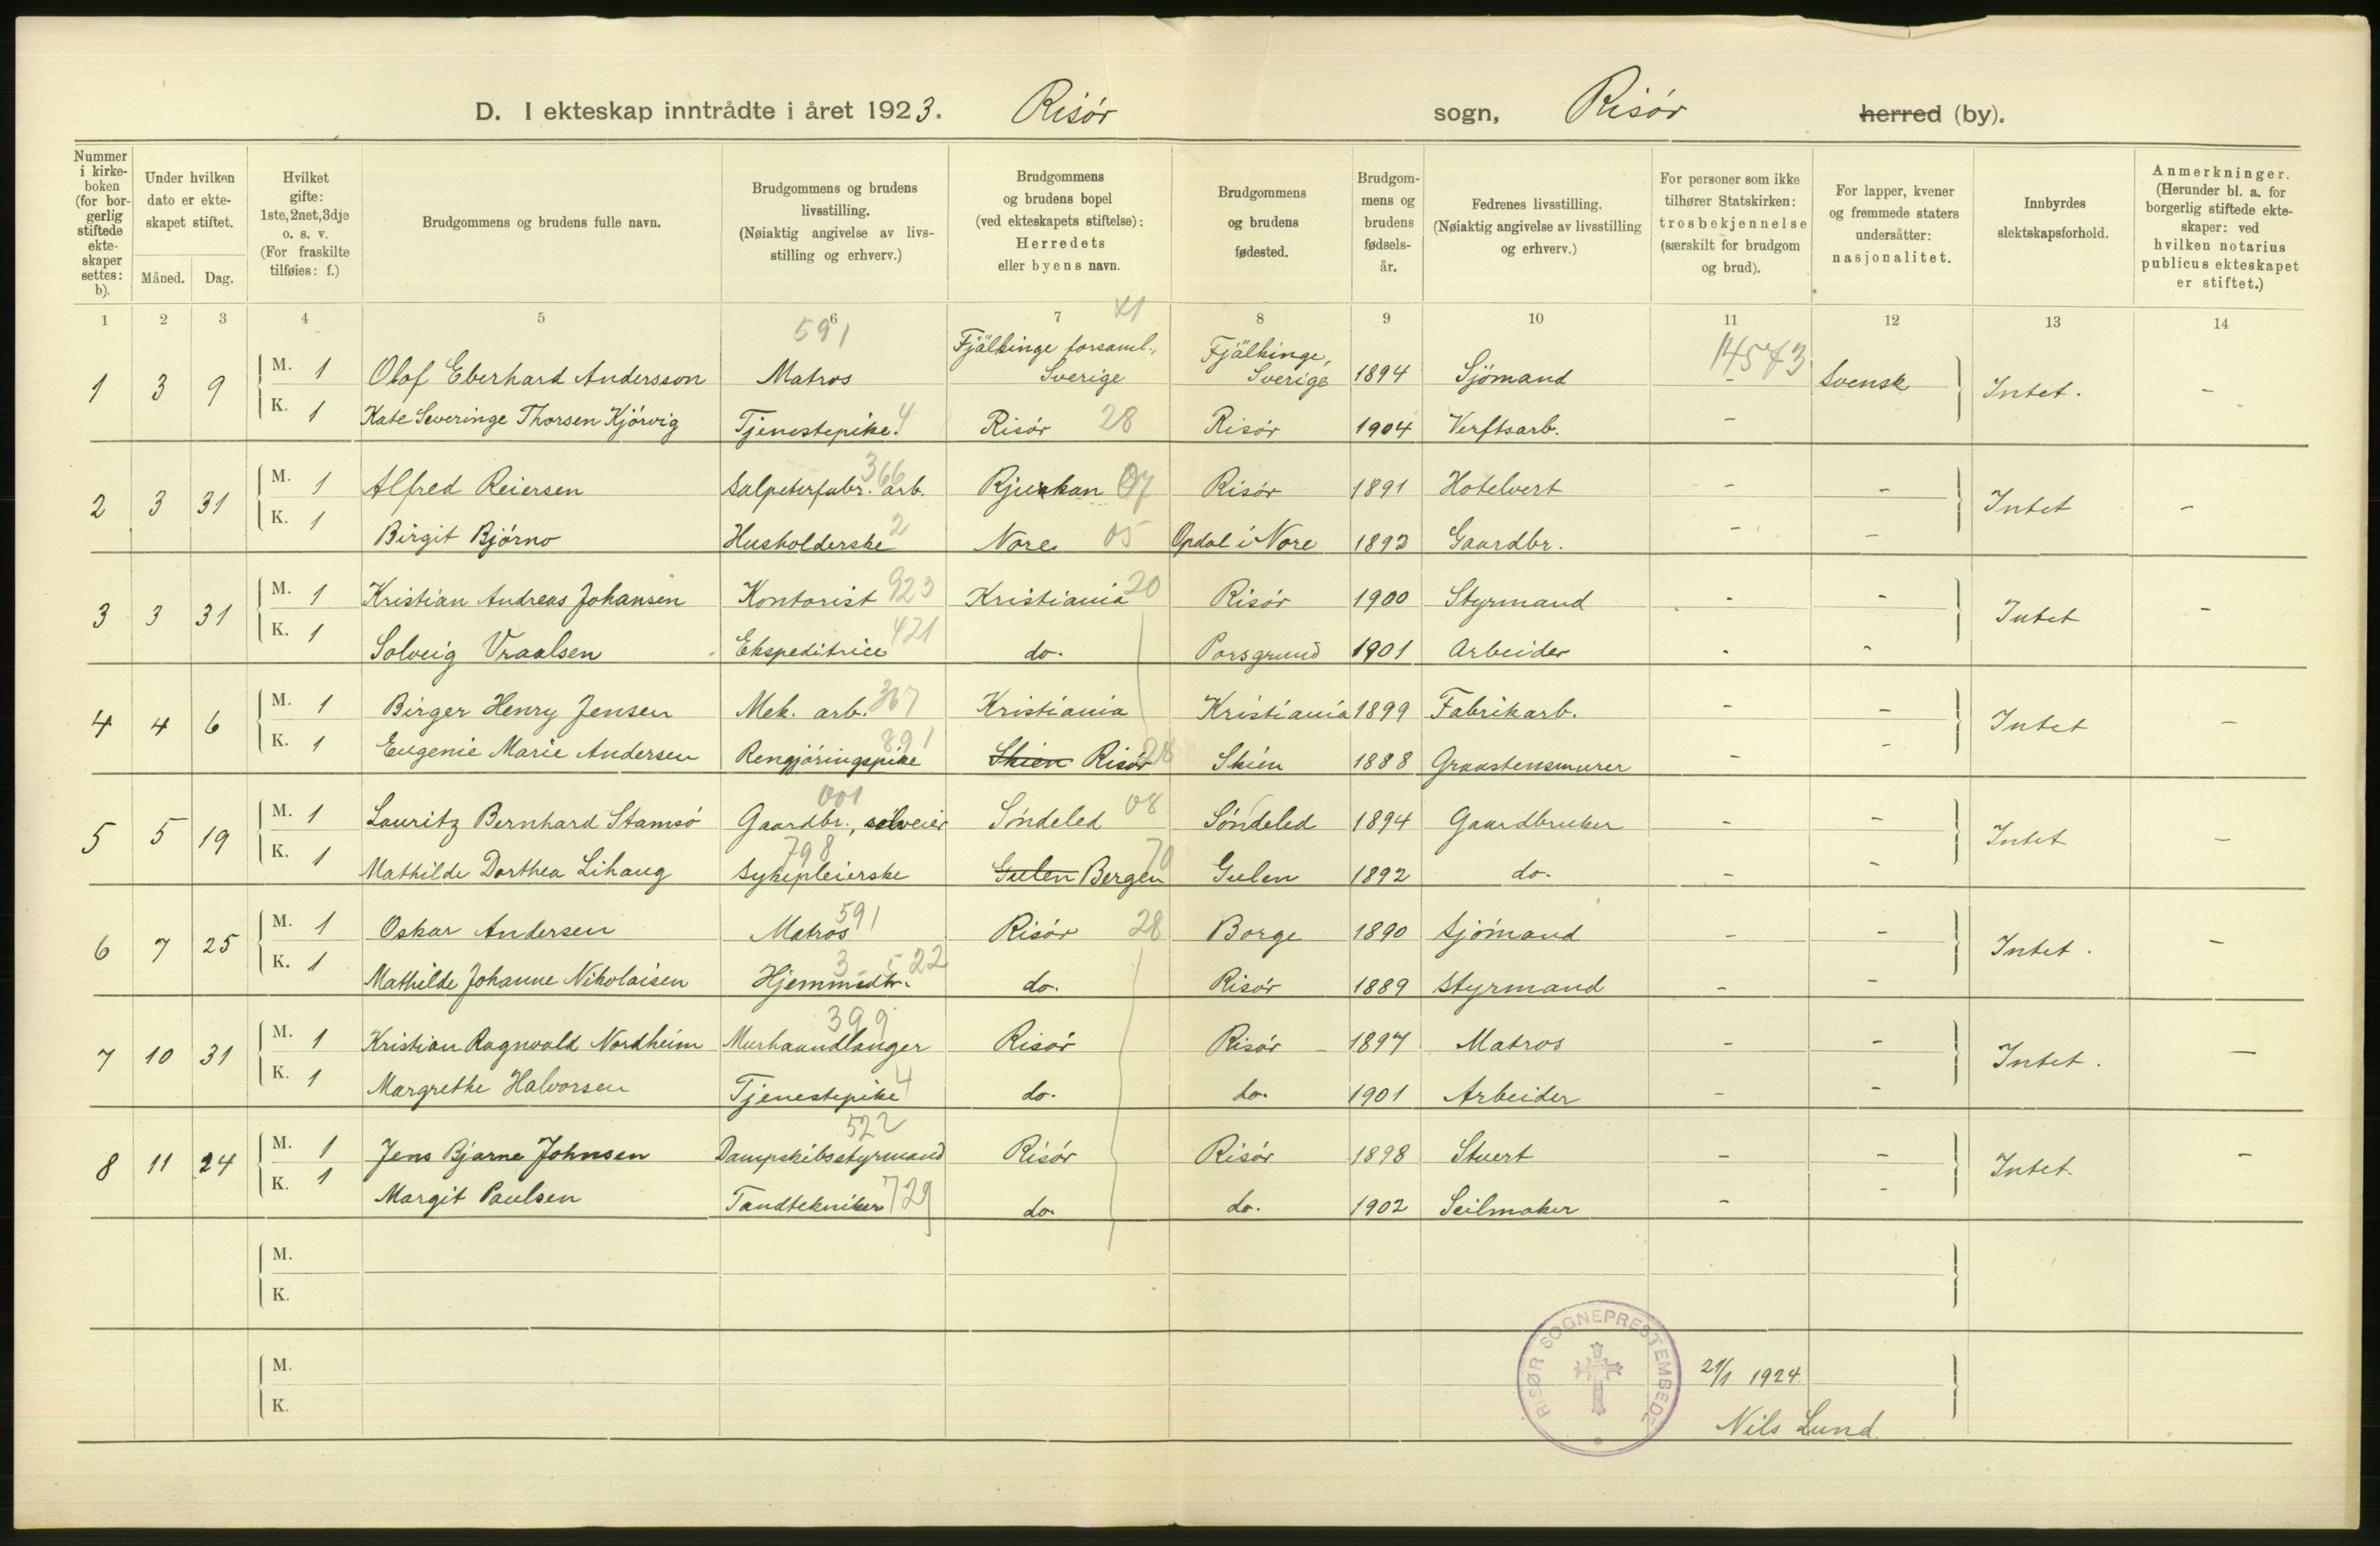 D. I ekteskap inntrådte i året 1923. Risör sogn, Risör herred (by).
Nummer i kirke-boken (for bor-gerlig stiftede ekte-skaper settes: b).
Under hvilken dato er ekte-skapet stiftet.
Måned. Dag.
Hvilket gifte: 1ste, 2net, 3dje o. s. v. (For fraskilte tilføies: f.)
Brudgommens og brudens fulle navn.
Brudgommens og brudens livsstilling. (Nøiaktig angivelse av livs-stilling og erhverv.)
Brudgommens og brudens bopel (ved ekteskapets stiftelse): Herredets eller byens navn.
Brudgommens og brudens fødested.
Brudgom-mens og brudens fødsels-år.
Fedrenes livsstilling. (Nøiaktig angivelse av livsstilling og erhverv.)
For personer som ikke tilhører Statskirken: trosbekjennelse (særskilt for brudgom og brud).
For lapper, kvener og fremmede staters undersåtter: nasjonalitet.
Innbyrdes slektskapsforhold.
Anmerkninger. (Herunder bl. a. for borgerlig stiftede ekte-skaper: ved hvilken notarius publicus ekteskapet er stiftet.)
1 2 3 4 5 6 7 8 9 10 11 12 13 14
591 14573
1 3 9 M. 1 Olof Eberhard Andersson Matros Fjälkinge forsaml., Sverige Fjälkinge, Sverige 1894 Sjömand - Svensk Intet. -
K. 1 Kate Severinge Thorsen Kjörvig Tjenestepike. 4 Risör 28 Risör 1904 Verftsarb. -
2 3 31 M. 1 Alfred Reiersen Salpeterfabr. arb. 366 Rjukan 07 Risör 1891 Hotelvert - - Intet -
K. 1 Birgit Björno Husholderske 2 Nore 05 Opdal i Nore 1893 Gaardbr. - -
3 3 31 M. 1 Kristian Andreas Johansen Kontorist 923 Kristiania 20 Risör 1900 Styrmand - - Intet -
K. 1 Solveig Vraalsen Ekspeditrice 421 do. Porsgrund 1901 Arbeider - -
4 4 6 M. 1 Birger Henry Jensen Mek. arb. 367 Kristiania Kristiania 1899 Fabrikarb. - - Intet -
K. 1 Eugenie Marie Andersen Rengjöringspike 891 Skien Risör 28 Skien 1888 Graastensmurer - -
5 5 19 M. 1 Lauritz Bernhard Stamsö Gaardbr., selveier 001 Söndeled 08 Söndeled 1894 Gaardbruker - - Intet -
K. 1 Mathilde Dorthea Lihaug Sykepleierske 798 Gulen Bergen 70 Gulen 1892 do. - -
6 7 25 M. 1 Oskar Andersen Matros 591 Risör 28 Borge 1890 Sjömand - - Intet. -
K. 1 Mathilde Johanne Nikolaisen Hjemmedtr. 3 - 522 do. Risör 1889 Styrmand - -
7 10 31 M. 1 Kristian Ragnvald Nordheim Murhaandlanger 399 Risör Risör 1897 Matros - - Intet. -
K. 1 Margrethe Halvorsen Tjenestepike 4 do. do. 1901 Arbeider - -
8 11 24 M. 1 Jens Bjarne Johnsen Dampskibsstyrmand 522 Risör Risör 1898 Stuert - - Intet -
K. 1 Margit Paulsen Tandtekniker 729 do. do. 1902 Seilmaker - -
M.
K.
M.
K.
RISØR SOGNEPRESTEMBEDE
21/1 1924
Nils Lund